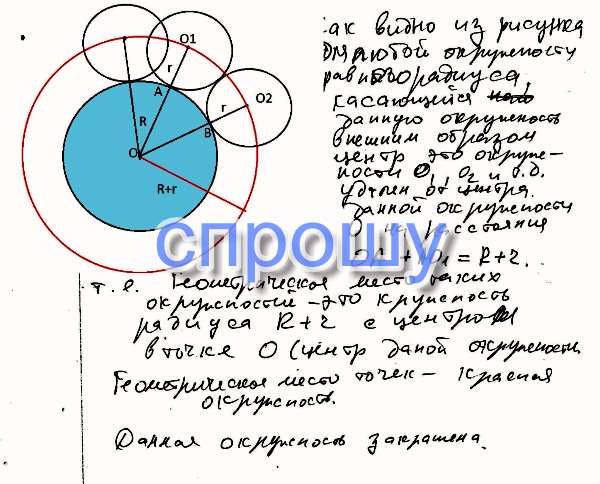 O1
r
A
r
O2
R
B
O
R+r
ак видно из рисунка
для любой окружности
равного радиуса,
касающейся
данную окружность
внешним образом
центр это окруж-
ности O₁, O₂ и т.д.
удален от центра
данной окружности
на расстояния
= R+r.
спрошу
т.е. Геометрическое место таких
окружностей - это кружность
радиуса R+r с центром
в точке O (центр даной окружности.
Геометрическое место точек - красная
окружность.
Данная окружность закрашена.